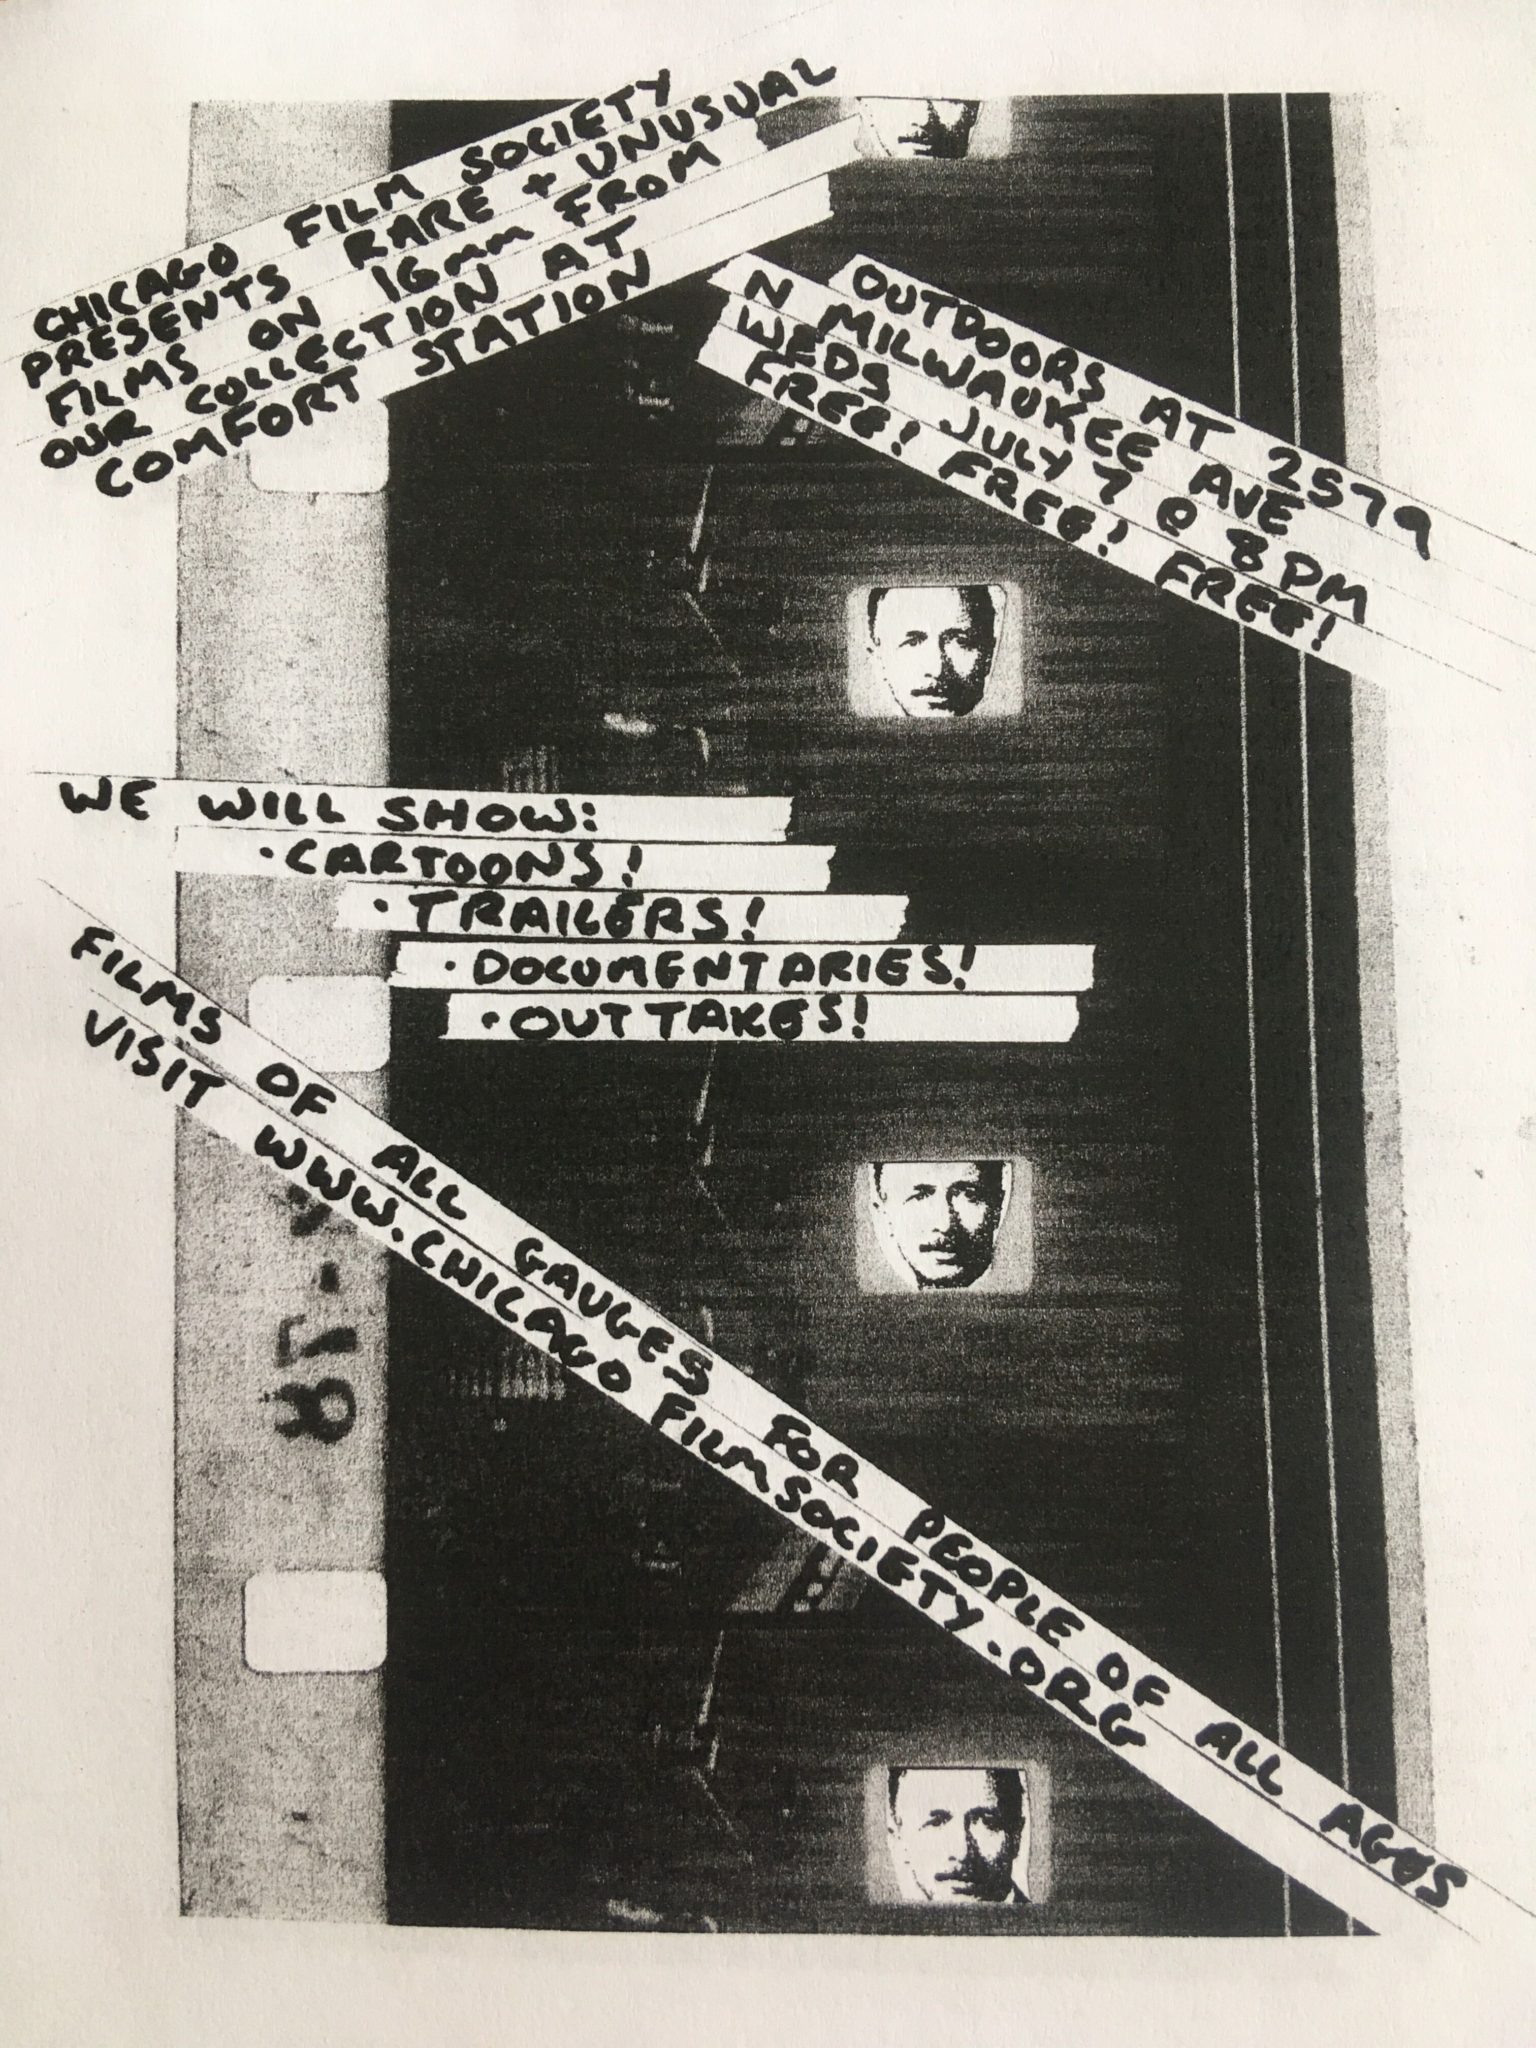 CHICAGO FILM SOCIETY
PRESENTS RARE + UNUSUAL
FILMS ON 16mm FROM
OUR COLLECTION AT
COMFORT STATION
OUTDOORS AT 2579
N MILWAUKEE AVE
WEDS JULY 7 @ 8PM
FREE! FREE! FREE!
WE WILL SHOW:
· CARTOONS!
· TRAILERS!
· DOCUMENTARIES!
· OUTTAKES!
FILMS OF ALL GAUGES FOR PEOPLE OF ALL AGES
VISIT WWW.CHICAGOFILMSOCIETY.ORG